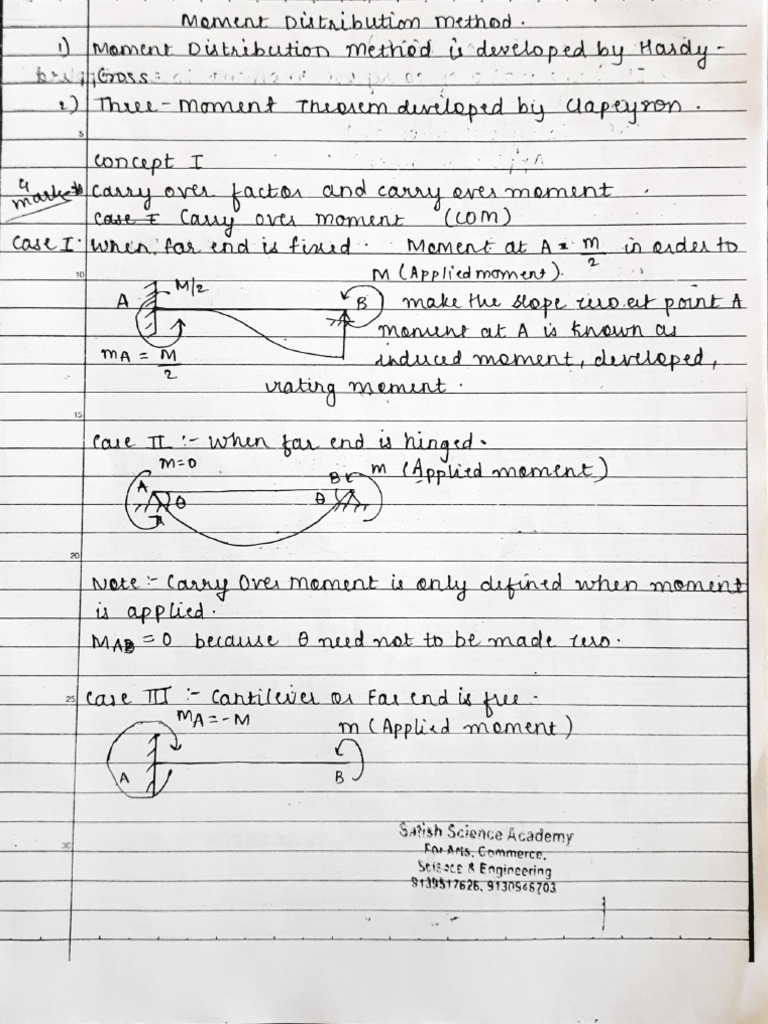 Moment Distribution method.
1) Moment Distribution method is developed by Hardy-
Cross.
2) Three-Moment Theorem developed by Clapeyron.
5
Concept I
4 marks
Carry over factor and carry over moment.
Case I Carry over moment (COM)
Case I. When far end is fixed. Moment at A = M/2 in order to
10
M (Applied moment).
A M/2 B make the slope zero at point A
moment at A is known as
mA = M/2 induced moment, developed,
rating moment.
15
Case II :- When far end is hinged.
M=0
A θ θ B m (Applied moment)
20
Note :- Carry Over Moment is only defined when moment
is applied.
MAB = 0 because θ need not to be made zero.
25
Case III :- Cantilever or Far end is free.
MA = -M m (Applied moment)
A B
Satish Science Academy
30
For Arts, Commerce,
Science & Engineering
9139517626, 9130946703